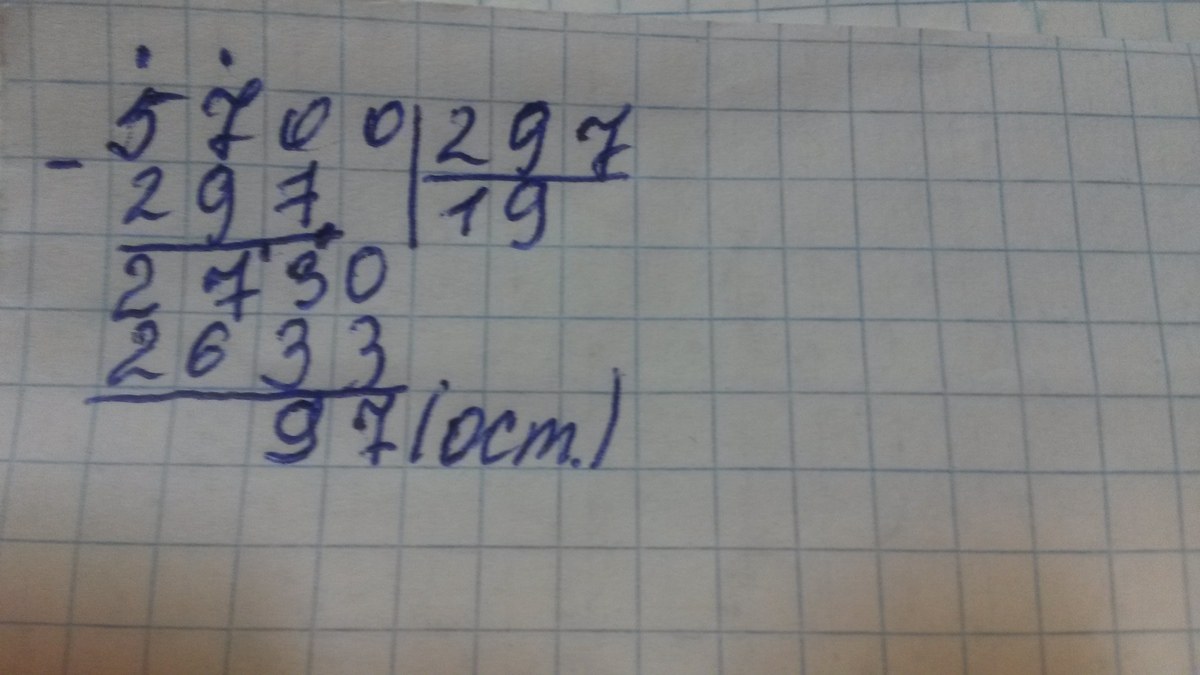 5700|297
- 297 | 19
2730
2633
97 (ост.)